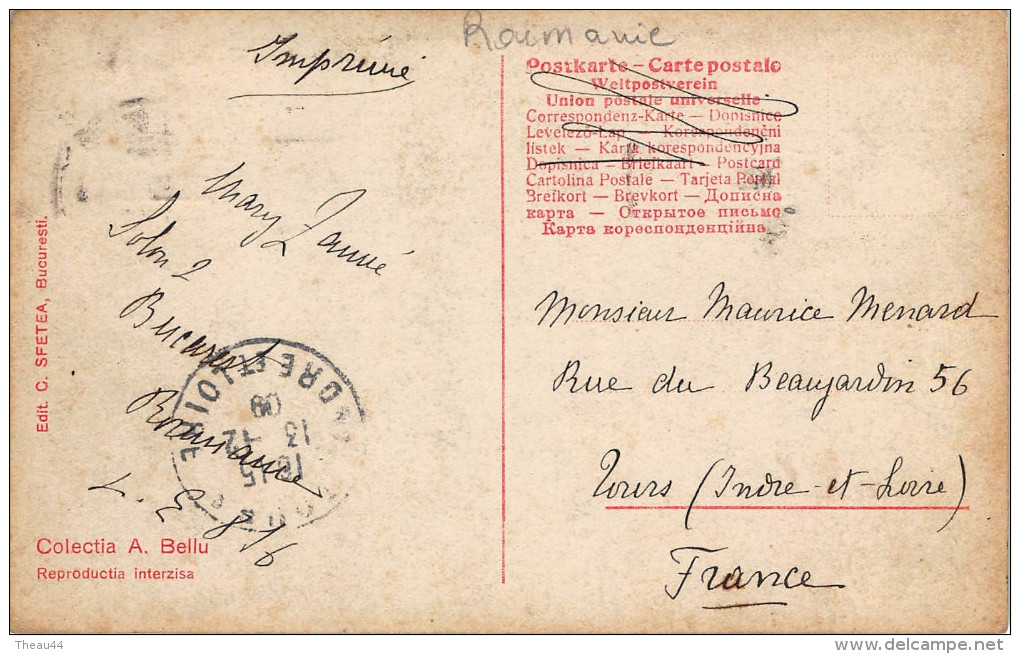 Roumanie
Imprimé
Postkarte – Carte postale
Weltpostverein
Union postale universelle
Correspondenz-Karte — Dopisnice
Levelező-Lap — Korespondenční
lístek — Karta korespondencyjna
Dopisnica — Briefkaart — Postcard
Cartolina Postale — Tarjeta Postal
Brefkort — Brevkort — Дописна
карта — Открытое письмо
Карта кореспонденційна
Mary
Solon 2
Bucarest
Roumanie
INDRE ET LOIRE
18 15
13 -12
09
Edit. C. SFETEA, Bucuresti.
Colectia A. Bellu
Reproductia interzisa
Monsieur Maurice Menard
Rue du Beaujardin 56
Tours (Indre-et-Loire)
France
Theau44
delcampe.net